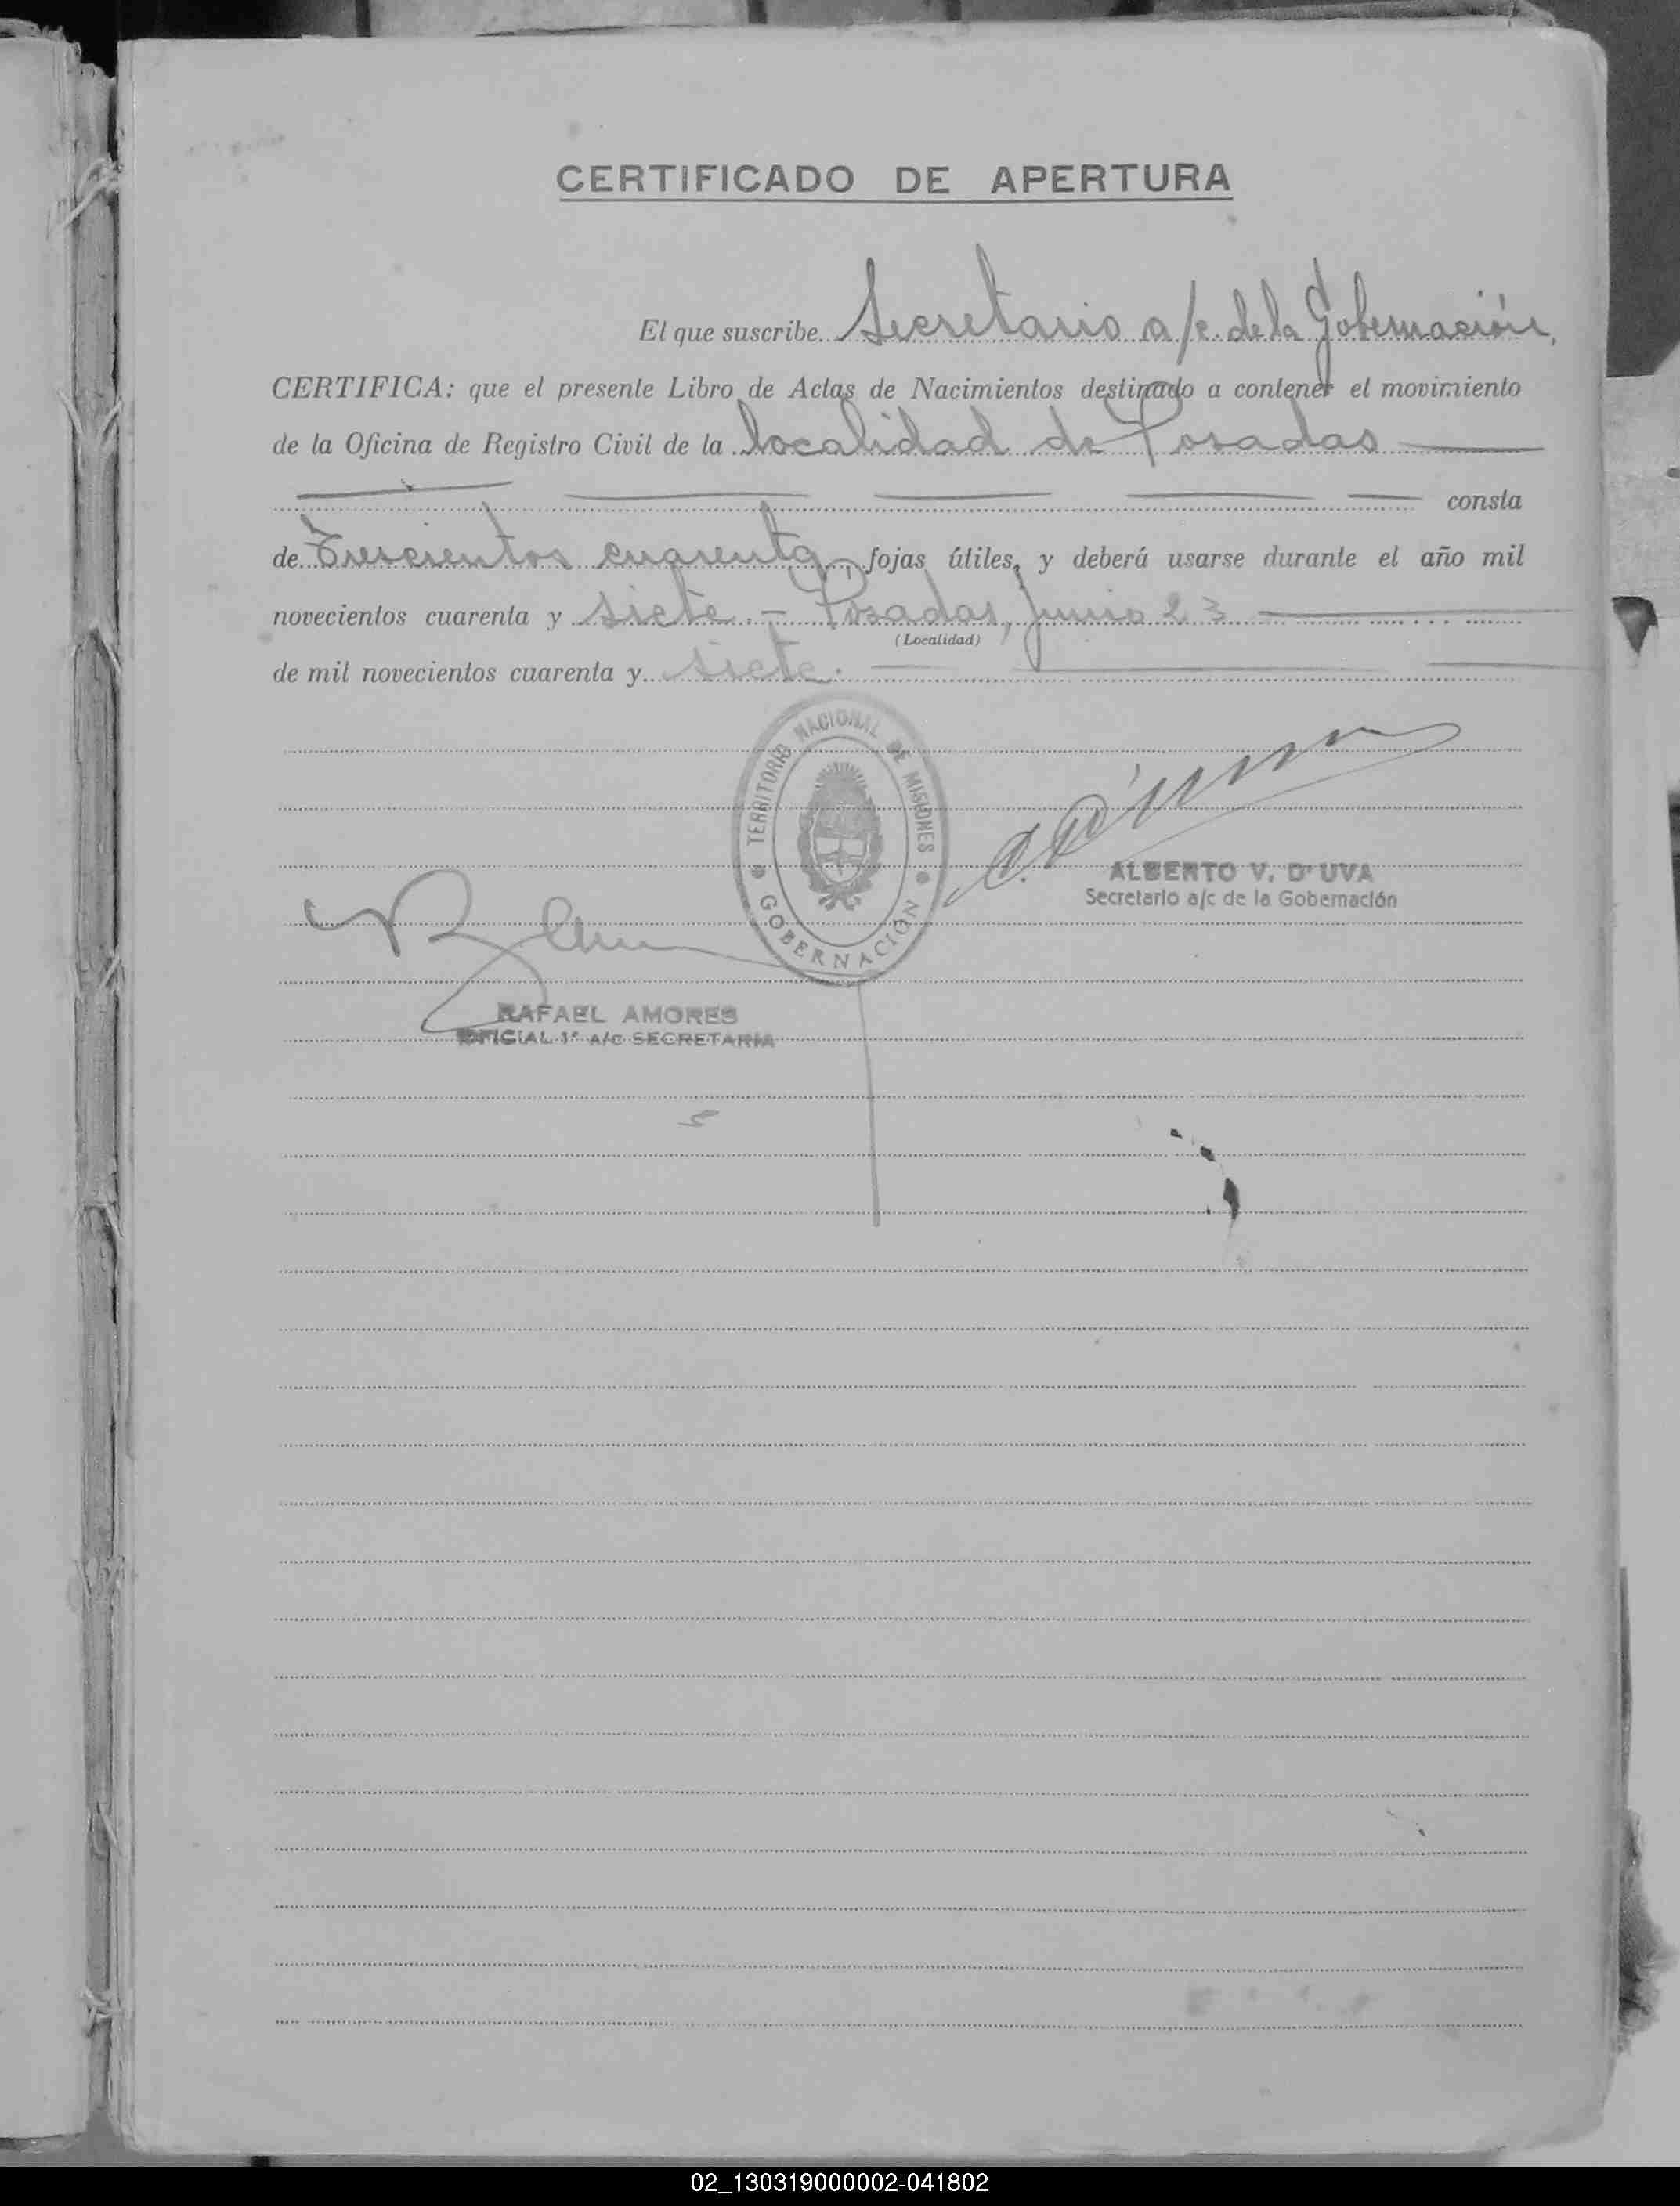 CERTIFICADO DE APERTURA
El que suscribe Secretario a/c. de la Gobernación,
CERTIFICA: que el presente Libro de Actas de Nacimientos destinado a contener el movimiento
de la Oficina de Registro Civil de la localidad de Posadas
consta
de Trescientos cuarenta fojas útiles, y deberá usarse durante el año mil
novecientos cuarenta y siete.- Posadas, Junio 23
(Localidad)
de mil novecientos cuarenta y siete.
TERRITORIO NACIONAL DE MISIONES
GOBERNACIÓN
ALBERTO V. D'UVA
Secretario a/c de la Gobernación
RAFAEL AMORES
OFICIAL 1º A/C SECRETARIA
02_130319000002-041802